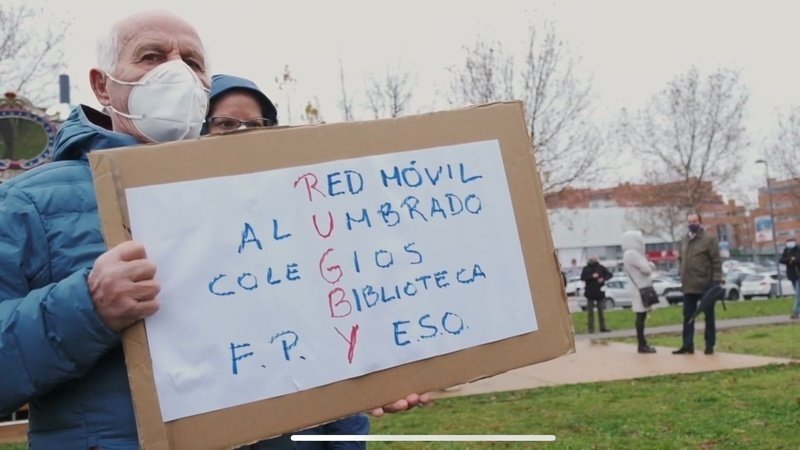 RED MÓVIL
ALUMBRADO
COLEGIOS
BIBLIOTECA
F.P. Y E.S.O.